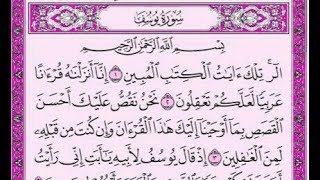 سُورَةُ يُوسُفَ
بِسْمِ ٱللَّهِ ٱلرَّحْمَٰنِ ٱلرَّحِيمِ
الٓر تِلْكَ ءَايَٰتُ ٱلْكِتَٰبِ ٱلْمُبِينِ ١ إِنَّآ أَنزَلْنَٰهُ قُرْءَٰنًا
عَرَبِيًّا لَّعَلَّكُمْ تَعْقِلُونَ ٢ نَحْنُ نَقُصُّ عَلَيْكَ أَحْسَنَ
ٱلْقَصَصِ بِمَآ أَوْحَيْنَآ إِلَيْكَ هَٰذَا ٱلْقُرْءَانَ وَإِن كُنتَ مِن قَبْلِهِۦ
لَمِنَ ٱلْغَٰفِلِينَ ٣ إِذْ قَالَ يُوسُفُ لِأَبِيهِ يَٰٓأَبَتِ إِنِّى رَأَيْتُ